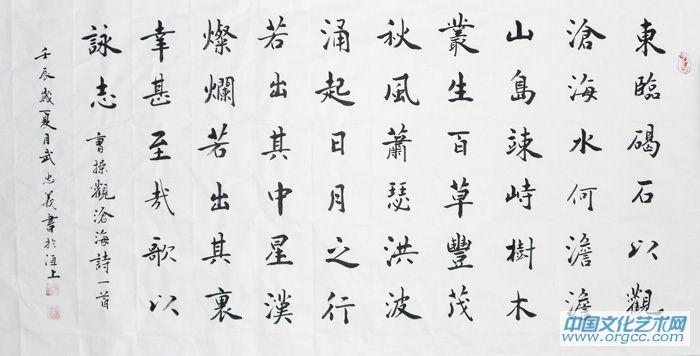 東臨碣石以觀
滄海水何澹澹
山島竦峙樹木
叢生百草豐茂
秋風蕭瑟洪波
涌起日月之行
若出其中星漢
燦爛若出其裏
幸甚至哉歌以
詠志
曹操觀滄海詩一首
壬辰歲夏月武忠義書於洹上
中国文化艺术网
www.orgcc.com